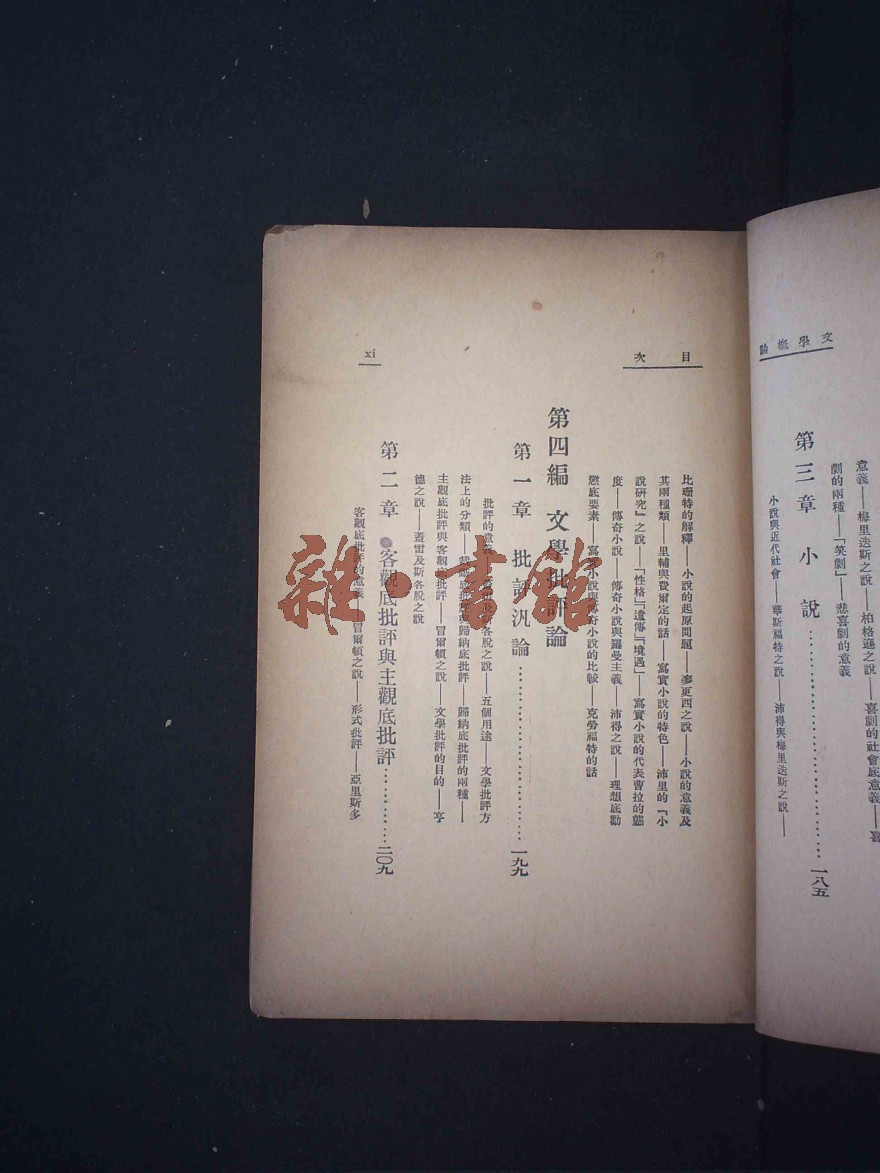 文學概論
意義——梅里迭斯之說——柏格遜之說——喜劇的社會底意義——喜
劇的兩種——「笑劇」——悲喜劇的意義
第三章 小說……………………一八五
小說與近代社會——華斯福特之說——沛得與梅里迭斯之說——
目次
比珊特的解釋——小說的起原問題——多更西之說——小說的意義及
其兩種類——里輔與費爾定的話——寫實小說的特色——沛里的『小
說研究』之說——「性格」『遺傳』『境遇』——寫實小說的代表曹拉的態
度——傳奇小說——傳奇小說與羅曼主義——沛得之說——理想底勸
懲底要素——寫實小說與傳奇小說的比較——克勞福特的話
第四編 文學批評論
第一章 批評汎論……………………一九九
批評的意義——蓋雷及斯各脫之說——五個用途——文學批評方
法上的分類——裁斷底批評與歸納底批評——歸納底批評的兩種——
主觀底批評與客觀底批評——冒爾頓之說——文學批評的目的——亨
德之說——蓋雷及斯各脫之說
第二章 客觀底批評與主觀底批評…………二〇九
客觀底批評的意義——冒爾頓之說——形式批評——亞里斯多
xi
雜·書館